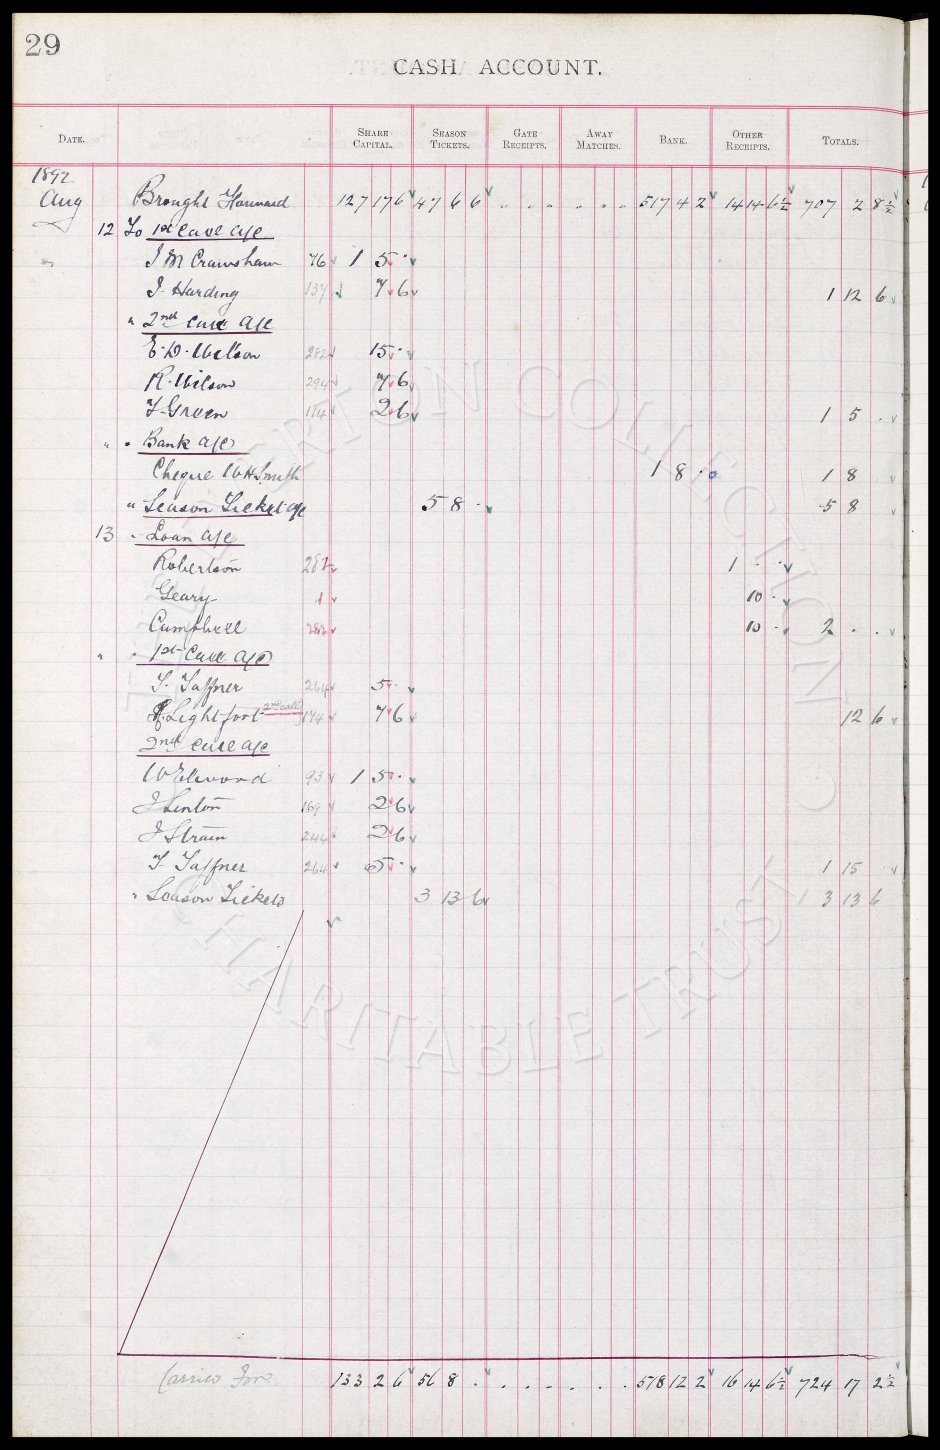 29
CASH ACCOUNT.
DATE. SHARE CAPITAL. SEASON TICKETS. GATE RECEIPTS. AWAY MATCHES. BANK. OTHER RECEIPTS. TOTALS.
1892
Aug Brought Forward 127 17 6 47 6 6 " " " " " " 517 4 2 14 14 6½ 707 2 8½
12 To 1st Call a/c
J M Crawshaw 76 1 5 .
J. Harding 137 7 6 1 12 6
" 2nd Call a/c
E. D. Wilson 282 15 .
R. Wilson 294 7 6
T. Green 114 2 6 1 5 .
" " Bank a/c
Cheque W H Smith 1 8 . 1 8
" Season Ticket a/c 5 8 . 5 8
13 " Loan a/c
Robertson 282 1 . .
Geary 1 10 .
Campbell 282 10 . 2 . .
" " 1st Call a/c
T. Taffner 264 5 .
Lightfoot 2nd call 174 7 6 12 6
2nd Call a/c
W Elwood 93 1 5 .
J Linton 169 2 6
J Strain 244 2 6
T. Taffner 264 5 . 1 15 .
" Season Tickets 3 13 6 3 13 6
Carried For. 133 2 6 56 8 . . . . . . . 518 12 2 16 14 6½ 724 17 2½
THE EVERTON COLLECTION
CHARITABLE TRUST